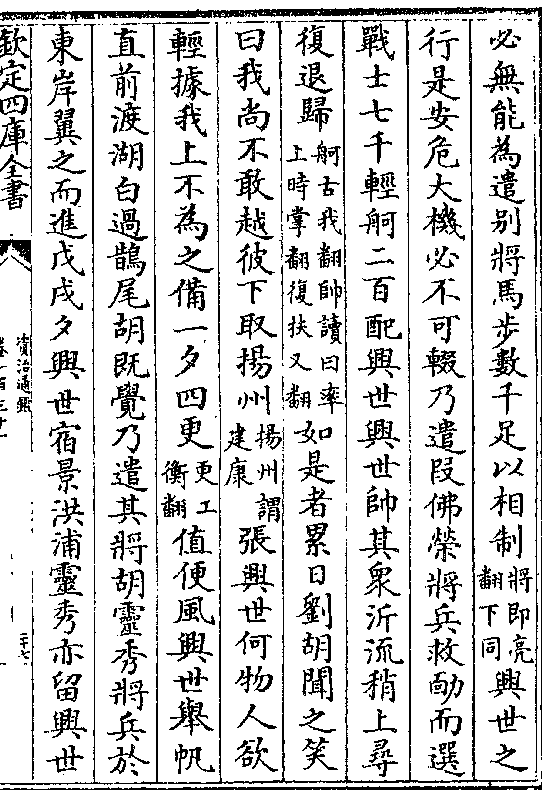 必無能為遣别將馬步數千足以相制將即亮翻下同興世之
行是安危大機必不可輟乃遣段佛榮將兵救勔而選
戰士七千輕舸二百配興世興世帥其衆泝流稍上尋
復退歸舸古我翻帥讀曰率上時掌翻復扶又翻如是者累日劉胡聞之笑
曰我尚不敢越彼下取揚州揚州謂建康張興世何物人欲
輕據我上不為之備一夕四更更工衡翻值便風興世舉帆
直前渡湖白過鵲尾胡既覺乃遣其將胡靈秀將兵於
東岸翼之而進戊戌夕興世宿景洪浦靈秀亦留興世
欽定四庫全書
資治通鑑
卷一百三十一
二十六